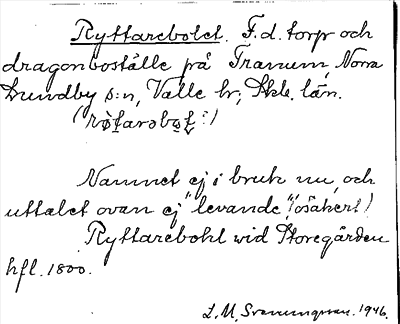 Ryttarebolet. F.d. torp och
dragonboställe på Tranum, Norra
Lundby s:n, Valle hr, Skb. län.
Namnet ej i bruk nu, och
uttalet ovan ej "levande". (osäkert)
Ryttarebohl wid Storegården
hfl. 1800.
L. M. 1946.